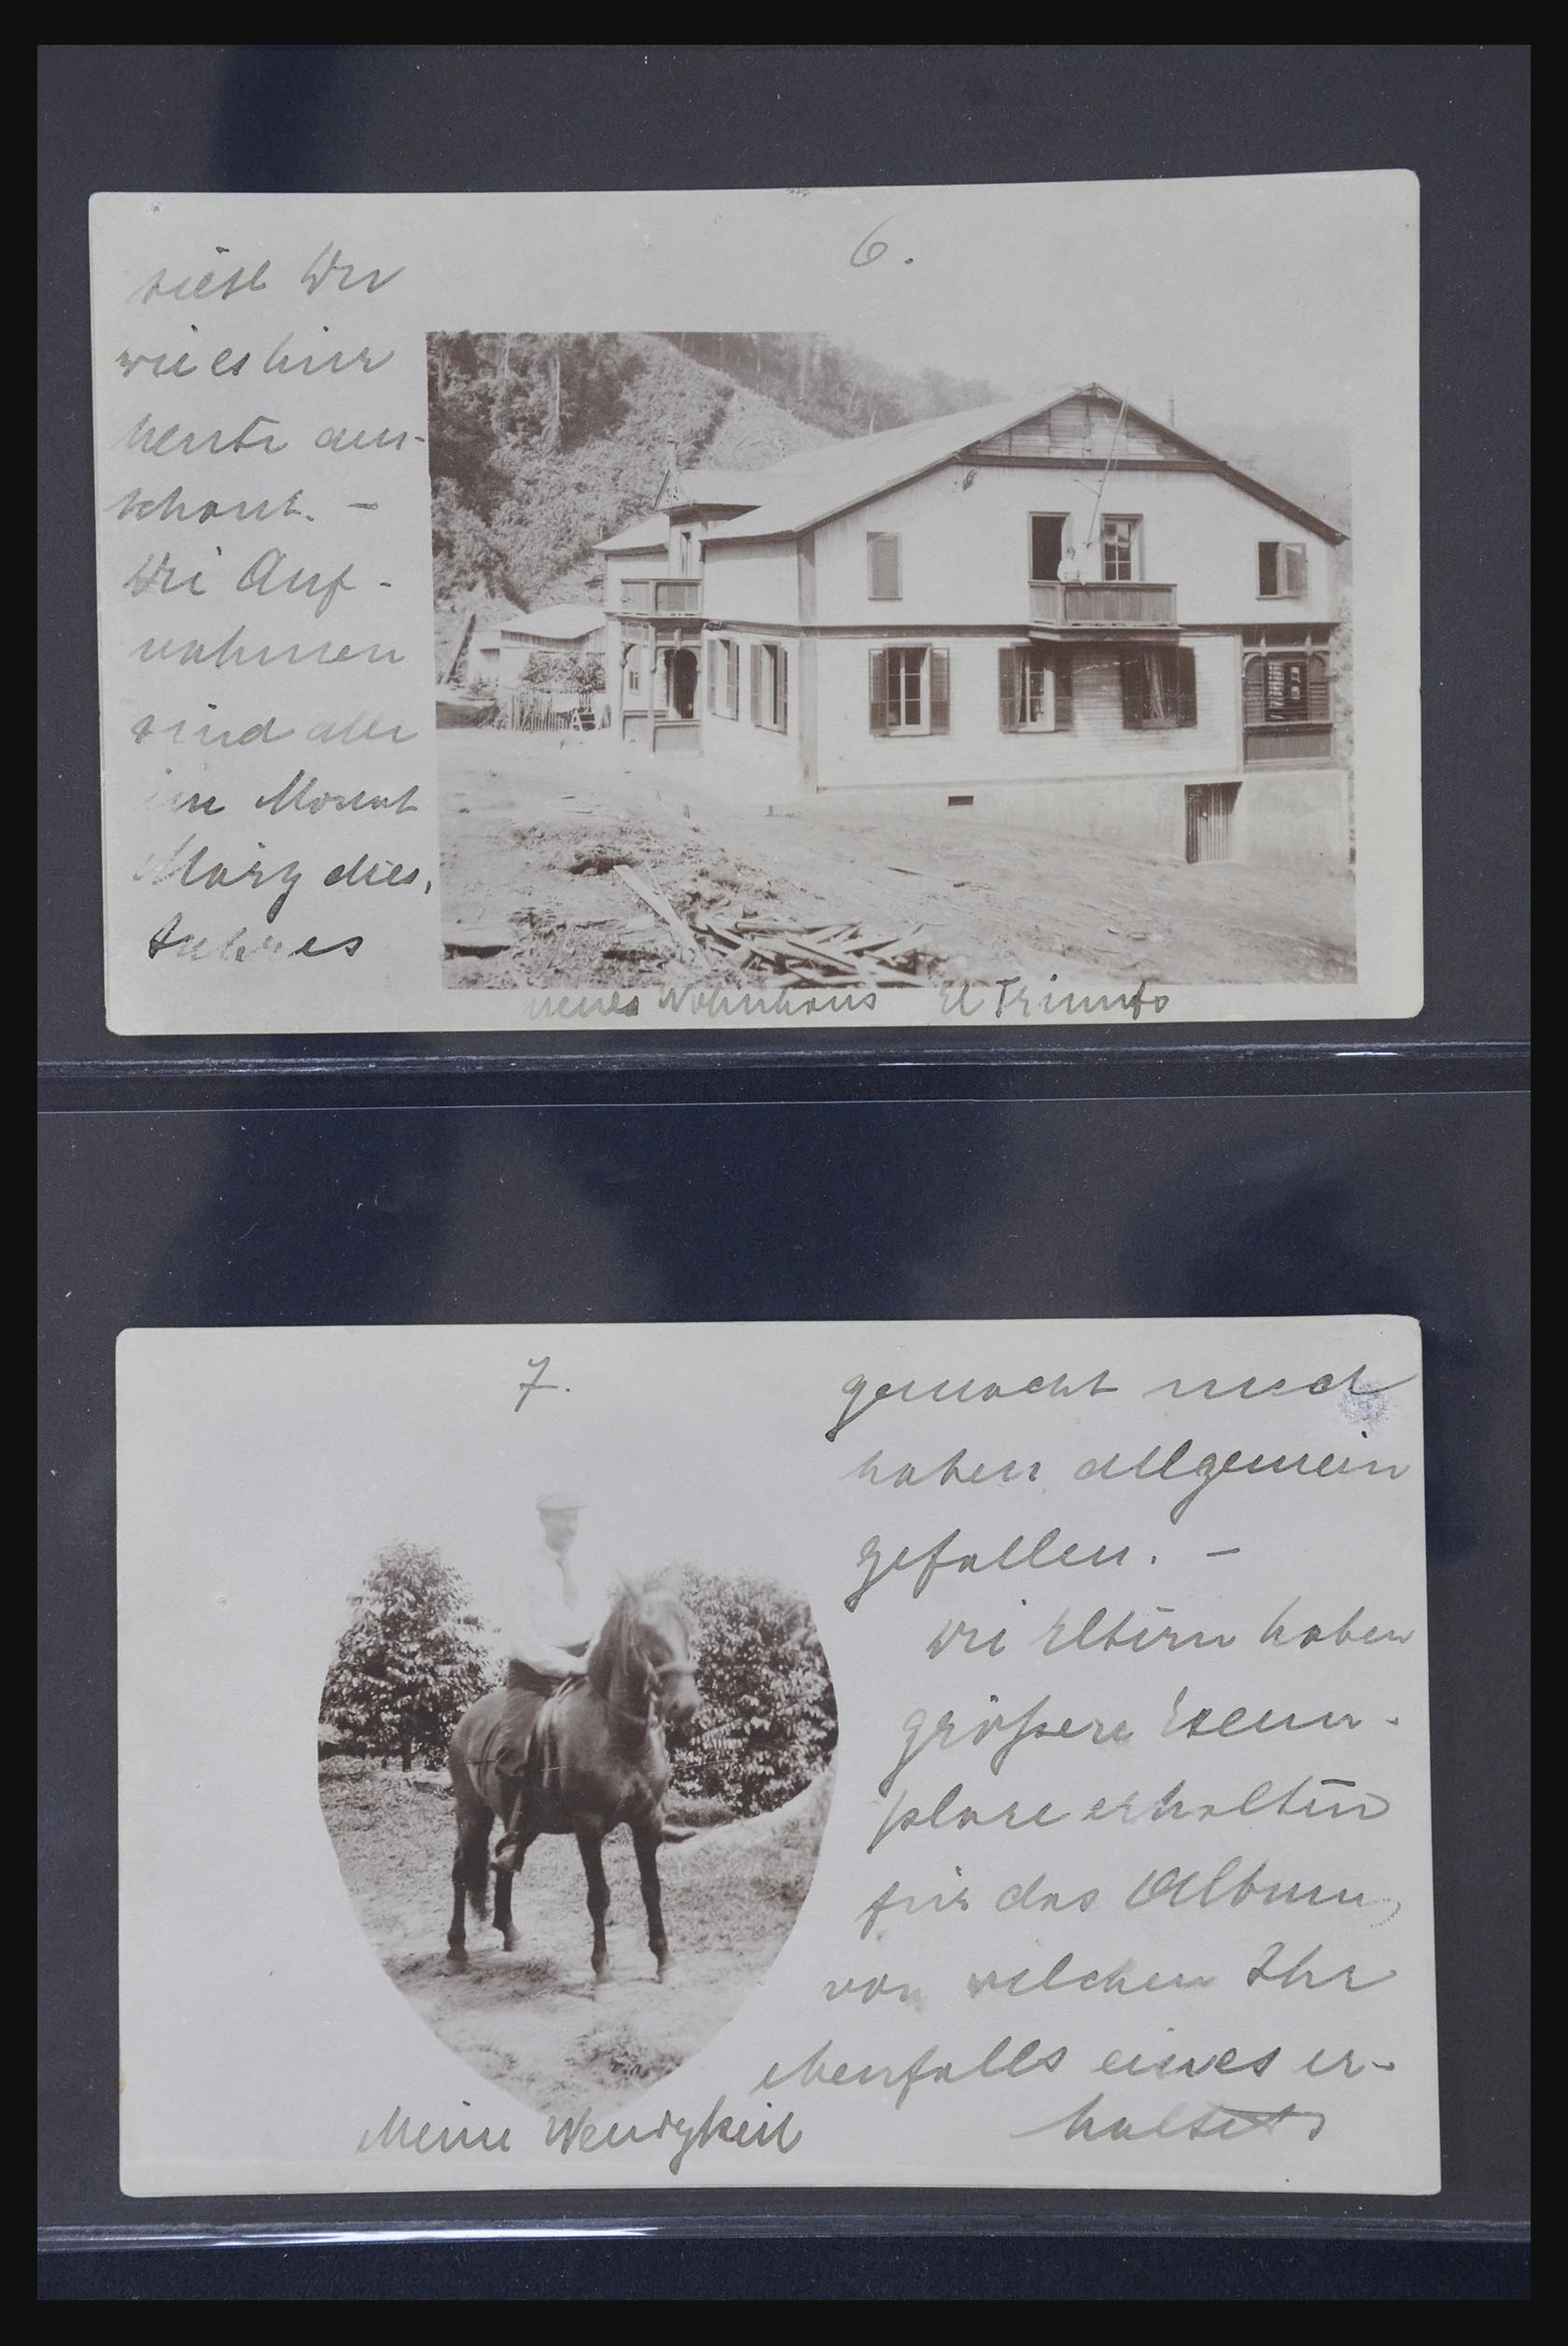 6.
siehst Du
wie es hier
heute aus-
schaut. –
Die Auf-
nahmen
sind alle
im Monat
März dies.
Jahres
neues Wohnhaus El Triunfo
7.
gemacht und
haben allgemein
gefallen. –
Die Eltern haben
größere Exem-
plare erhalten
für das Album,
von welchen Ihr
ebenfalls eines er-
haltet
Meine Wenigkeit